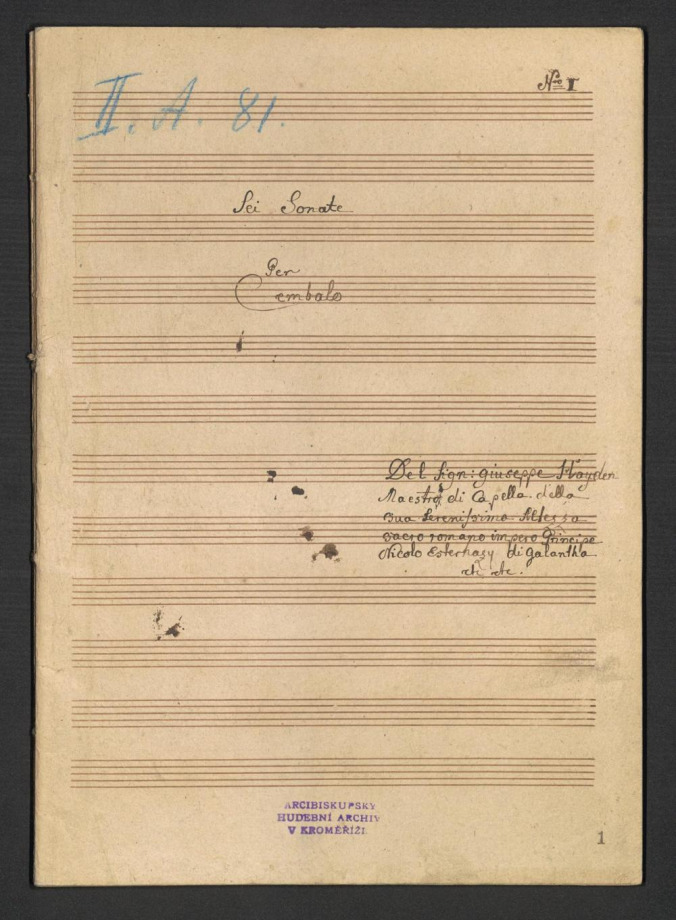 Nro I
II. A. 81.
Sei Sonate
Per
Cembalo
Del Sign: giuseppe Hayden
Maestro di Capella della
sua Serenissima Altessa
sacro romano impero Principe
Nicolo Esterhasy di galantha
etc etc.
ARCIBISKUPSKÝ
HUDEBNÍ ARCHIV
V KROMĚŘÍŽI
1